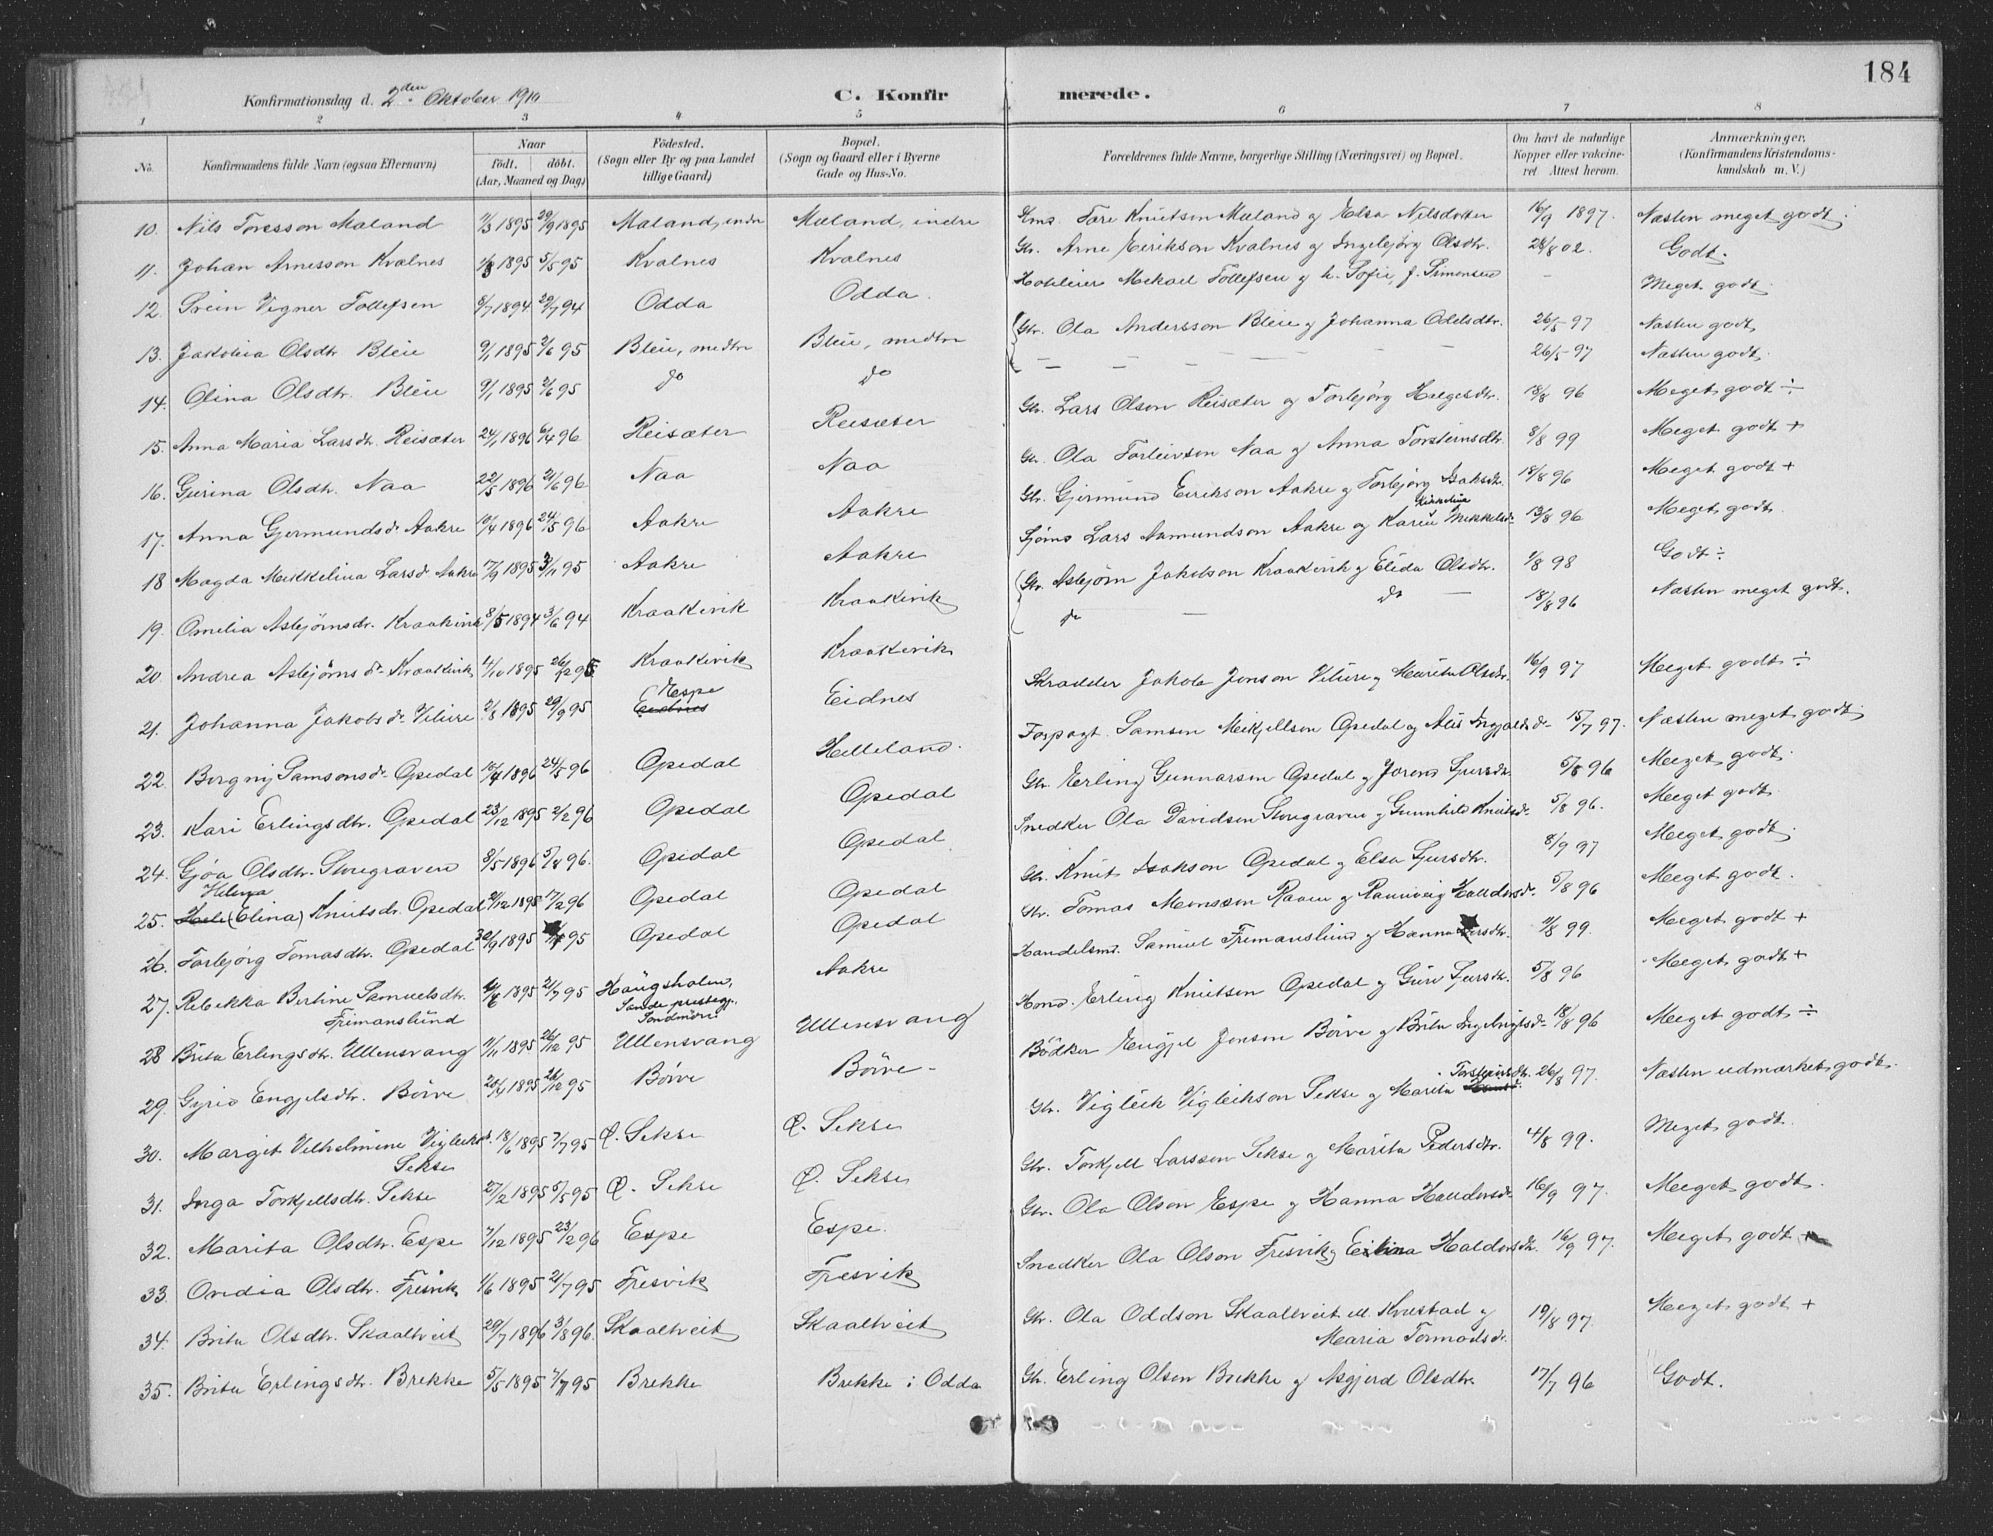 184
Konfirmationsdag d. 2den Oktober 1910
C. Konfirmerede.
1 2 3 4 5 6 7 8
No. Konfirmandens fulde Navn (ogsaa Efternavn) Naar födt. döbt. (Aar, Maaned og Dag) Födested. (Sogn eller By og paa Landet tillige Gaard) Bopæl. (Sogn og Gaard eller i Byerne Gade og Hus-No. Forældrenes fulde Navne, borgerlige Stilling (Næringsvei) og Bopæl. Om havt de naturlige Kopper eller vakcineret Attest herom. Anmærkninger. (Konfirmandens Kristendomskundskab m. V.)
10. Nils Toresson Mæland 1/3 1895 29/9 1895 Mæland, indre Mæland, indre Hms. Tore Knutson Mæland og Elsa Nilsdotter 16/9 1897. Næsten meget godt.
11. Johan Arnesson Kvalnes 5/5 95 Kvalnes Kvalnes Gbr. Arne Eirikson Kvalnes og Ingebjørg Olsdtr. 28/8 02. Godt.
12. Svein Vigner Tollefsen 8/7 1894 29/7 94 Odda Odda. Hoteleier Mikael Tollefsen og h. Sofie, f. Simonsen - Meget godt.
13. Jakobia Olsdtr Bleie 9/1 1895 2/6 95 Bleie, medtre Bleie, medtre Gbr. Ola Andersson Bleie og Johanna Odelsdtr. 26/5 97 Næsten godt
14. Olina Olsdtr. Bleie 9/1 1895 2/6 95 do do — — — — — 26/5 97 Næsten godt.
15. Anna Maria Larsdtr. Reisæter 24/1 1896 6/4 96 Reisæter Reisæter Gbr. Lars Olson Reisæter og Torbjørg Helgesdtr. 18/8 96 Meget godt ÷
16. Gurina Olsdtr. Naa 22/5 1896 21/6 96 Naa Naa Gbr. Ola Torleivson Naa og Anna Torsteinsdtr. 8/8 99 Meget godt +
17. Anna Gjermundsdr Aakre 10/4 1896 24/5 96 Aakre Aakre Gbr. Gjermund Eirikson Aakre og Torbjørg Isaksdtr. 18/8 96 Meget godt +
18 Magda Mikkelina Larsdr Aakre 17/9 1895 3/11 95 Aakre Aakre Sjøms Lars Aamundson Aakre og Karin Mikkelsdr 13/8 96 Meget godt.
19. Amelia Asbjørnsdr. Kraakevik 8/5 1894 3/6 94 Kraakevik Kraakevik Gbr. Asbjørn Jakobson Kraakevik og Elida Olsdtr. 1/8 98 Godt ÷
20. Andrea Asbjørnsdr Kraakevik 1/10 1895 26/12 95 Kraakevik Kraakevik do — do — 18/8 96 Næsten meget godt.
21. Johanna Jakobsdr Vilure 2/8 1895 29/9 95 Espe Eidnes Skrædder Jakob Jonson Vilure og Marita Olsdtr. 16/9 97 Meget godt ÷
22. Borgny Samsonsdr Opedal 10/4 1896 24/5 96 Opedal Helleland. Forpagt. Samson Mikjellson Opedal og Ingjaldsdr 15/7 97. Næsten meget godt.
23. Kari Erlingsdtr. Opedal 23/12 1895 2/2 96 Opedal Opedal Gbr. Erling Gunnarson Opedal og Joren Sjursdtr 5/8 96 Meget godt.
24. Gjøa Olsdtr. Storegraven 3/5 1896 96. Opedal Opedal Snedker Ola Davidson Storegraven og Gunnhild Knutsdr 5/8 96. Meget godt.
25. Helena (Elina) Knutsdr Opedal 21/12 1895 17/2 96 Opedal Opedal Gbr. Knut Isakson Opedal og Elsa Sjursdtr. 8/9 97 Meget godt.
26. Torbjørg Tomasdtr. Opedal 30/9 1895 95 Opedal Opedal Gbr. Tomas Monsson Raaen og Rannveig Halldorsdr 5/8 96 Meget godt.
27. Rebekka Bertine Samuelsdtr. Frimanslund 1895 21/7 95 Haugsholen, Sande prestegj. Søndmøre Aakre Handelsm. Samuel Frimanslund og Hanna 11/8 99. Meget godt +
28 Brita Erlingsdtr. Ullensvang 1/11 1895 26/12 95 Ullensvang Ullensvang Hms. Erling Knutson Opedal og Guro Sjursdtr. 5/8 96 Meget godt +
29. Gyrid Engjelsdtr. Börve 1895 26/12 95 Börve Börve Bödker Engjel Jonson Börve og Brita Ingebrigtsdr 18/8 96 Meget godt ÷
30. Margit Vilhelmine Vigleiksdr. Sekse 18/6 1895 7/7 95 Ø. Sekse Ø. Sekse Gbr. Vigleik Vigleikson Sekse og Marita Torsteinsdtr. 26/8 97. Næsten udmærket godt.
31. Inga Torkjellsdtr. Sekse 27/2 1895 5/5 95 Ø. Sekse Ø. Sekse Gbr. Torkjell Larsson Sekse og Marita Pedersdtr. 4/8 99. Meget godt.
32. Marita Olsdtr. Espe 7/12 1895 23/2 96 Espe Espe. Gbr. Ola Olson Espe og Hanna Halldorsdr 16/9 97. Meget godt.
33. Ovidia Olsdtr. Fresvik 1/6 1895 21/7 95 Fresvik Fresvik Snedker Ola Olson Fresvik og Haldorsdtr. 16/9 97. Meget godt
34. Brita Olsdtr. Skaaltveit 20/7 1896 3/8 96. Skaaltveit Skaaltveit Gbr. Ola Oddson Skaaltveit el. Kvestad og Maria Tormodsdr. 19/8 97. Meget godt +
35. Brita Erlingsdtr. Brekke 5/5 1895 7/7 95 Brekke Brekke i Odda Gbr. Erling Olson Brekke og Asgjerd Olsdtr. 17/7 96 Godt.